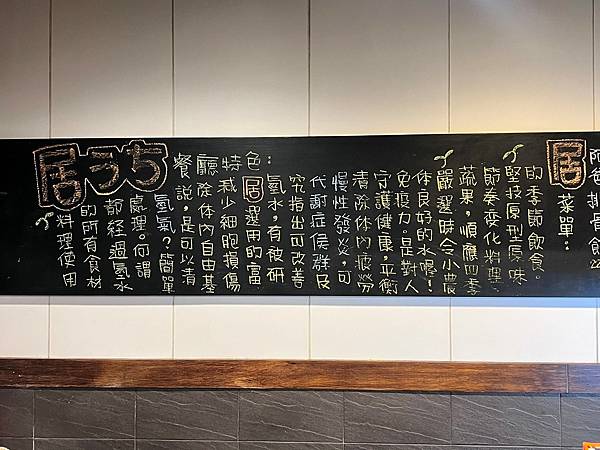 居うち
餐廳特色:
料理使用
的所有食材
都經過氫水
處理。何謂
氫氣?簡單
說,是可以清
除體內自由基
減少細胞損傷
居選用的富
氫水,有被研
究指出可改善
代謝症候群及
慢性發炎,可
清除體內疲勞
守護健康,平衡
免疫力。是對人
體良好的水喔!
嚴選時令小農
蔬果,順應四季
節奏變化料理,
堅持原型原味
的季節飲食。
居菜單:
阿爸排骨飯